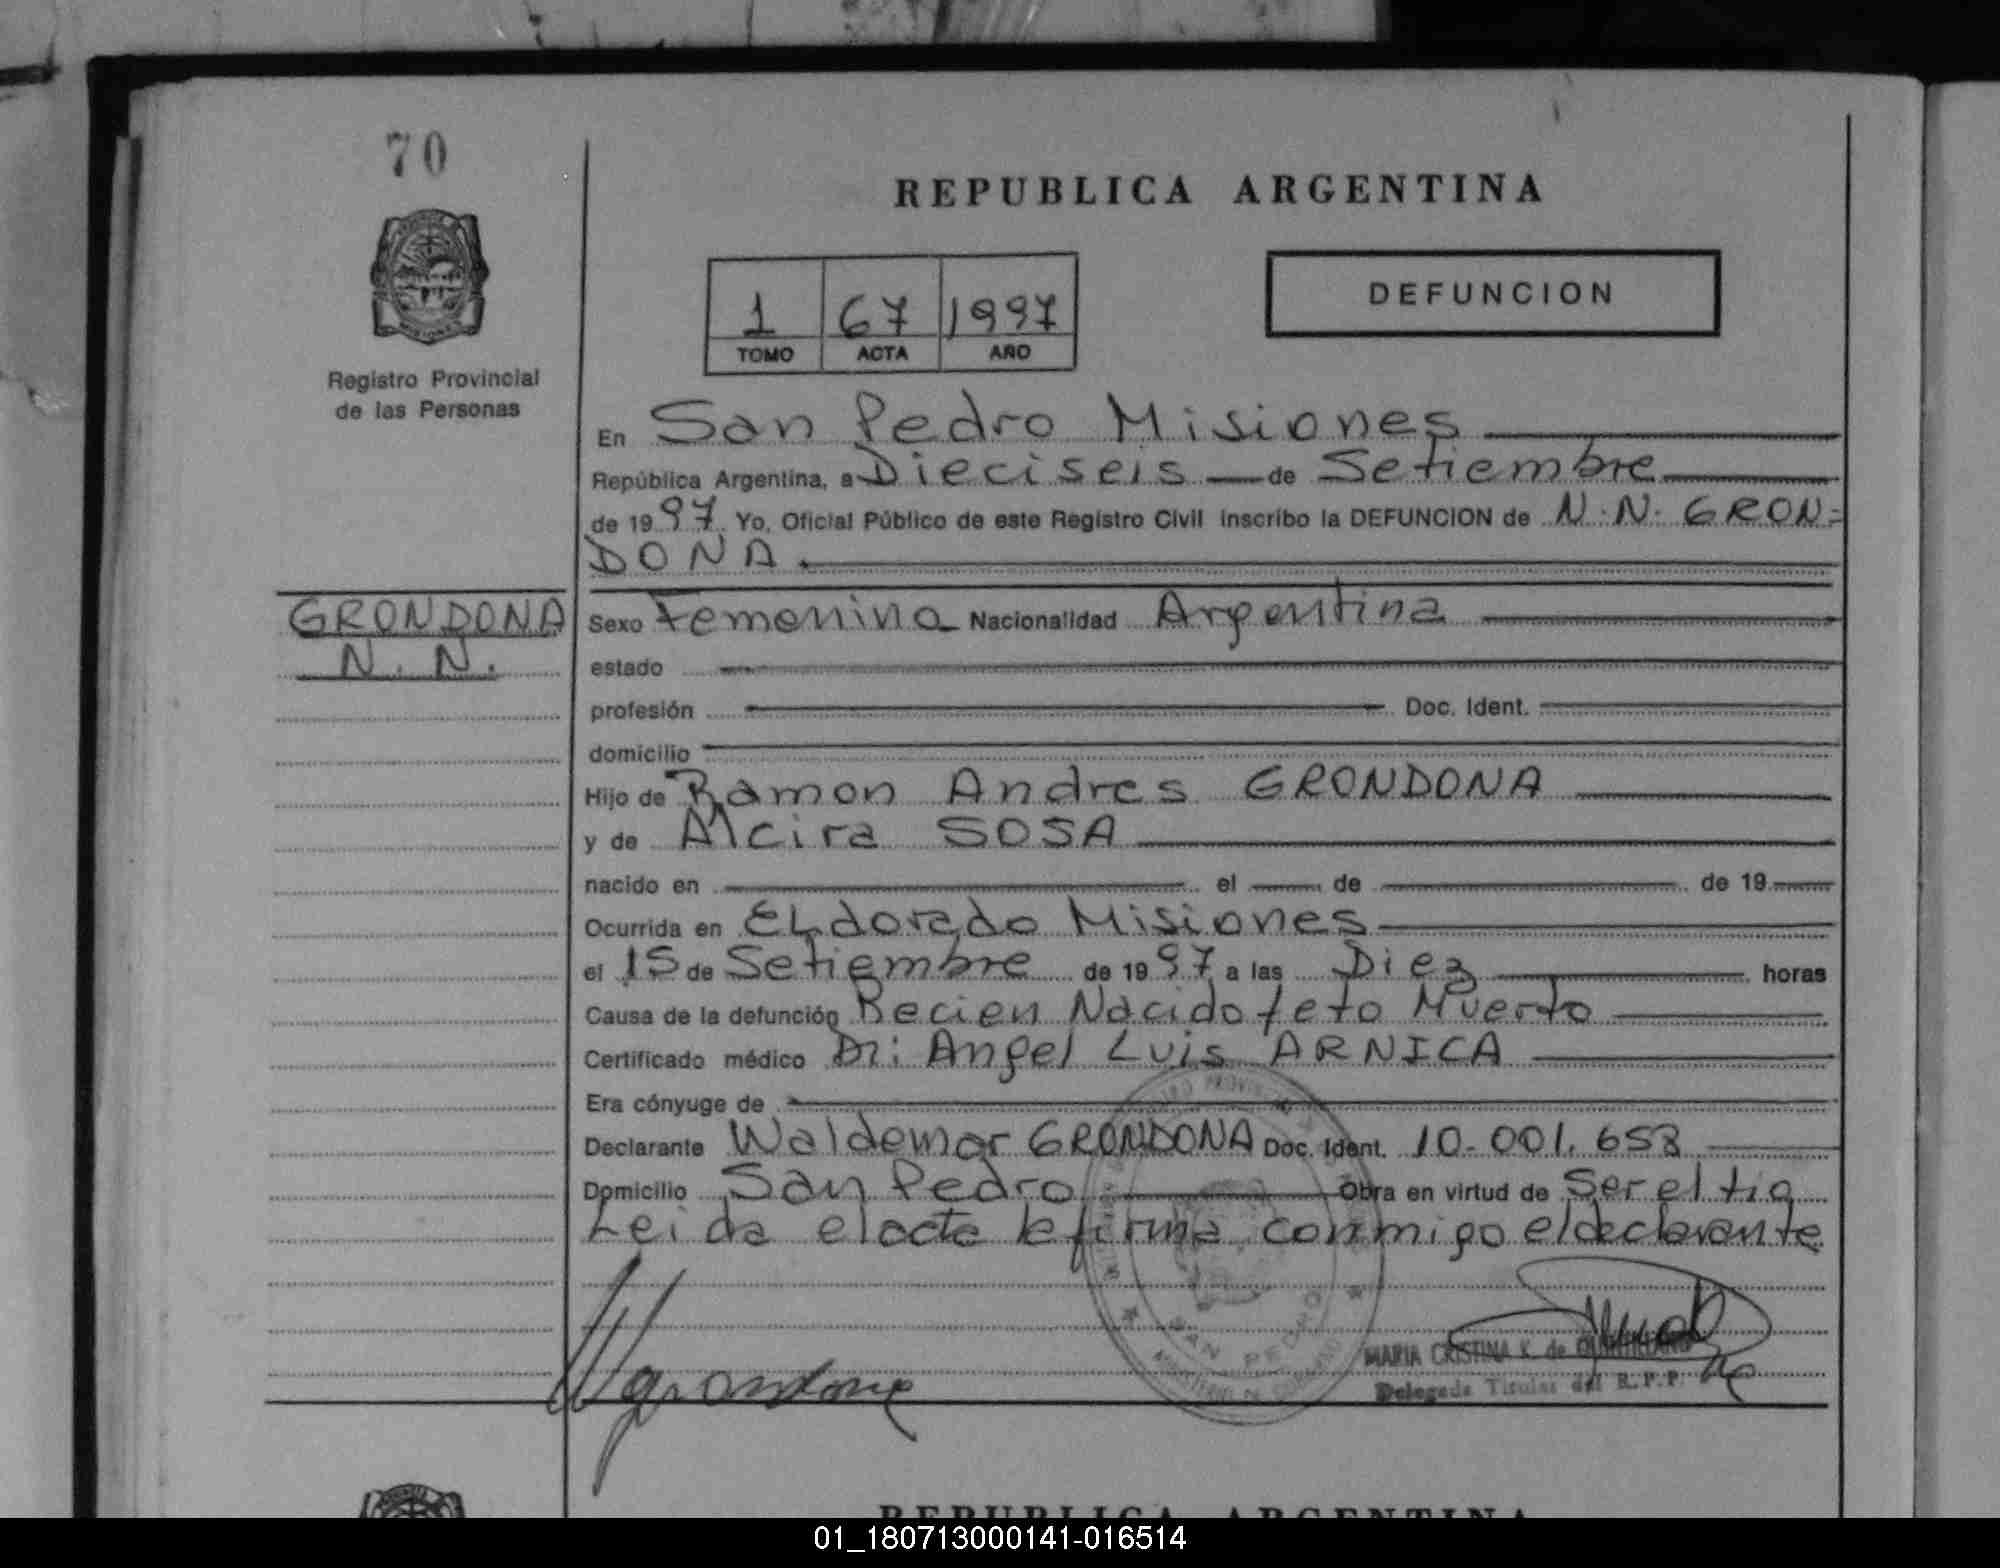 70
REPUBLICA ARGENTINA
MISIONES
Registro Provincial
de las Personas
1 67 1997
TOMO ACTA AÑO
DEFUNCION
En San Pedro Misiones
República Argentina, a Dieciseis de Setiembre
de 1997 Yo, Oficial Público de este Registro Civil inscribo la DEFUNCION de N.N. GRON=
DONA.
GRONDONA
N. N.
Sexo Femenina Nacionalidad Argentina
estado
profesión Doc. Ident.
domicilio
Hijo de Ramon Andres GRONDONA
y de Alcira SOSA
nacido en el de de 19
Ocurrida en ELdorado Misiones
el 15 de Setiembre de 1997 a las Diez horas
Causa de la defunción Recien Nacido feto Muerto
Certificado médico Dr: Angel Luis ARNICA
Era cónyuge de
Declarante Waldemar GRONDONA Doc. Ident. 10.001.653
Domicilio San Pedro Obra en virtud de Ser el tio
Leida el acta la firma conmigo el declarante
SAN PEDRO
MARIA CRISTINA K. de
Delegada Titular del R.P.P.
REPUBLICA ARGENTINA
01_180713000141-016514